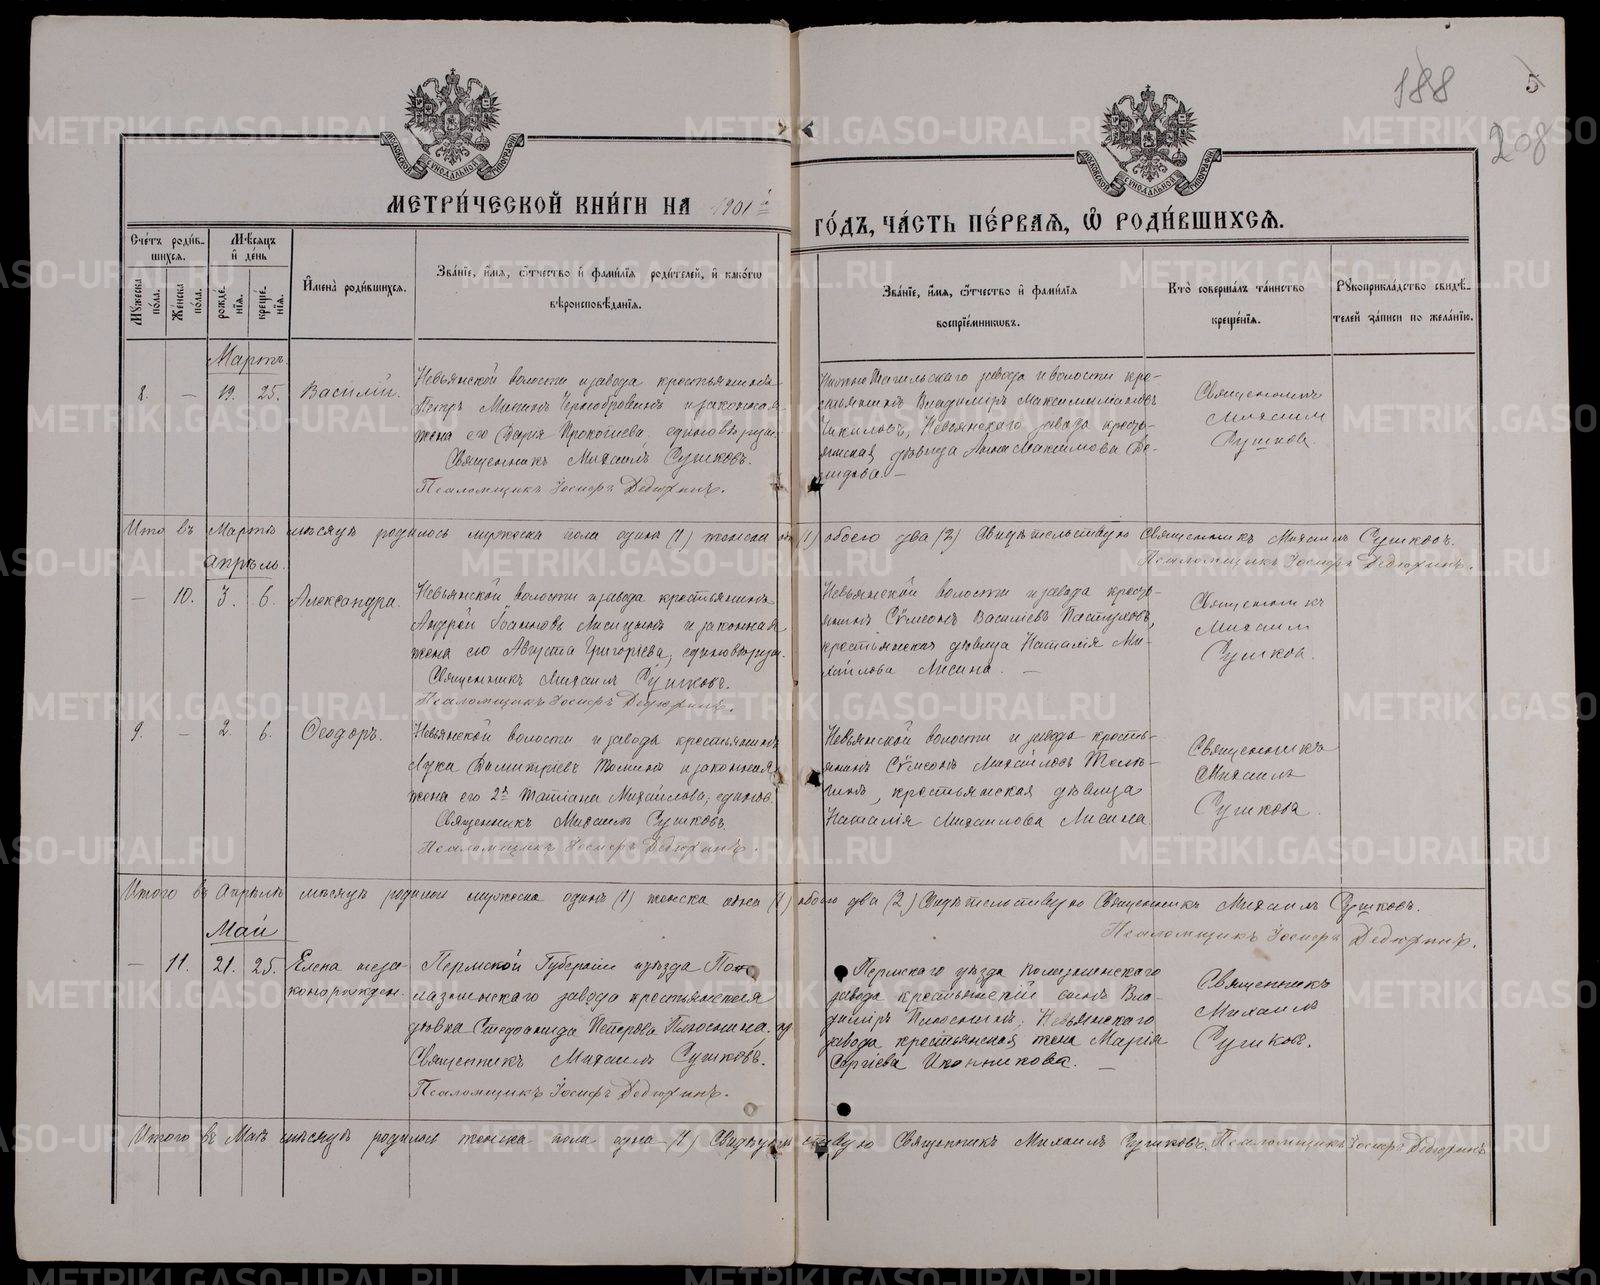 188
5
208
МОСКОВСКОЙ СѴНОДАЛЬНОЙ ТИПОГРАФІИ
МОСКОВСКОЙ СѴНОДАЛЬНОЙ ТИПОГРАФІИ
МЕТРИ́ЧЕСКОЙ КНИ́ГИ НА 1901й
ГО́ДЪ, ЧА́СТЬ ПЕ́РВАЯ, Ѽ РОДИ́ВШИХСЯ.
Сче́тъ роди́в-
шихся.
Мѣ́сяцъ
и҆ де́нь
Мꙋ́жеска по́ла.
Же́нска по́ла.
рожде́нїя.
креще́нїя.
И҆мена̀ роди́вшихся.
Зва́нїе, и҆́мя, ѻ҆́тчество и҆ фами́лїя роди́телей, и҆ како́гѡ
вѣроисповѣ́данїя.
Зва́нїе, и҆́мя, ѻ҆́тчество и҆ фами́лїя
воспрїе́мникѡвъ.
Кто̀ соверша́лъ та́инство
креще́нїя.
Рꙋкоприкла́дство свидѣ́-
телей за́писи по жела́нїю.
Мартъ
8. — 19. 25. Василій.
Невьянской волости и завода крестьянинъ
Петръ и законная
жена его Дарія Прокопіева, единовѣрцы.
Священникъ Михаилъ Сушковъ.
Псаломщикъ Іосифъ Дедюхинъ.
Нижнетагильскаго завода и волости кре-
стьянинъ Владиміръ
Невьянскаго завода кресть-
янская дѣвица Анна Максимова Де-
мидова. —
Священникъ
Михаилъ
Сушковъ.
Итого въ Мартѣ мѣсяцѣ родилось мужеска пола одинъ (1) женска (1) обоего два (2) Свидѣтельствую Священникъ Михаилъ Сушковъ.
Псаломщикъ Іосифъ Дедюхинъ.
апрѣль.
— 10. 3. 6. Александра.
Невьянской волости и завода крестьянинъ
Андрей Іоанновъ Лисицынъ и законная
жена его Августа Григоріева, единовѣрцы.
Священникъ Михаилъ Сушковъ.
Псаломщикъ Іосифъ Дедюхинъ.
Невьянской волости и завода кресть-
янинъ Сѵмеонъ Василіевъ Пастуховъ,
крестьянская дѣвица Наталія Ми-
хайлова Лисина. —
Священникъ
Михаилъ
Сушковъ.
9. — 2. 6. Ѳеодоръ.
Невьянской волости и завода крестьянинъ
Лука Димитріевъ и законная
жена его 2я Татіана Михайлова, единов.
Священникъ Михаилъ Сушковъ.
Псаломщикъ Іосифъ Дедюхинъ.
Невьянской волости и завода кресть-
янинъ Сѵмеонъ Михайловъ
крестьянская дѣвица
Наталія Михаилова Лисина
Священникъ
Михаилъ
Сушковъ.
Итого въ Апрѣлѣ мѣсяцѣ родилось мужеска одинъ (1) женска одна (1) обоего два (2) Свидѣтельствую Священникъ Михаилъ Сушковъ.
Псаломщикъ Іосифъ Дедюхинъ.
Май
— 11. 21. 25. Елена неза-
коннорожден.
Пермской Губерніи и уѣзда Пол-
лазнинскаго завода крестьянская
дѣвка Стефанида Петрова Плюснина.
Священникъ Михаилъ Сушковъ.
Псаломщикъ Іосифъ Дедюхинъ.
Пермскаго уѣзда Полазнинскаго
завода крестьянскій сынъ Вла-
диміръ Плюснинъ, Невьянскаго
завода крестьянская жена Марія
Сергіева Иконникова. —
Священникъ
Михаилъ
Сушковъ.
Итого въ Маѣ мѣсяцѣ родилось женска пола одна (1) Свидѣтельствую Священникъ Михаилъ Сушковъ. Псаломщикъ Іосифъ Дедюхинъ
METRIKI.GASO-URAL.RU